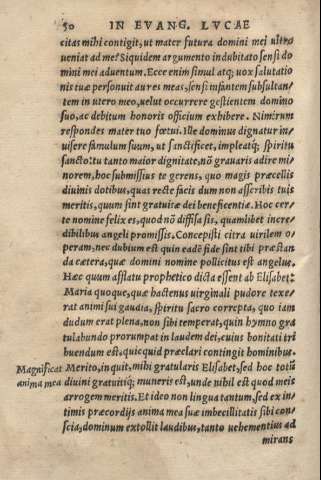 50 IN EVANG. LVCAE
citas mihi contigit, ut mater futura domini mei ultro
ueniat ad me? Siquidem argumento indubitato sensi do
mini mei aduentum. Ecce enim simul atq; uox salutatio
nis tuæ personuit aures meas, sensi infantem subsultan⸗
tem in utero meo, uelut occurrere gestientem domino
suo, ac debitum honoris officium exhibere. Nimirum
respondes mater tuo fœtui. Ille dominus dignatur in⸗
uisere famulum suum, ut sanctificet, impleatq; spiritu
sancto: tu tanto maior dignitate, nõ grauaris adire mi⸗
norem, hoc submissius te gerens, quo magis præcellis
diuinis dotibus, quas recte facis dum non asscribis tuis
meritis, quum sint gratuitæ dei beneficentiæ. Hoc cer⸗
te nomine felix es, quod nõ diffisa sis, quamlibet incre⸗
dibilibus angeli promissis. Concepisti citra uirilem o⸗
peram, nec dubium est quin eadẽ fide sint tibi præstan
da cætera, quæ domini nomine pollicitus est angelus.
Hæc quum afflatu prophetico dicta essent ab Elisabet:
Maria quoque, quæ hactenus uirginali pudore texe⸗
rat animi sui gaudia, spiritu sacro correpta, quo iam
dudum erat plena, non sibi temperat, quin hymno gra
tulabundo prorumpat in laudem dei, cuius bonitati tri
buendum est, quicquid præclari contingit hominibus.
Magnificat Merito, inquit, mihi gratularis Elisabet, sed hoc totũ
anima mea diuini gratuitiq; muneris est, unde nihil est quod meis
arrogem meritis. Et ideo non lingua tantum, sed ex in⸗
timis præcordijs anima mea suæ imbecillitatis sibi con⸗
scia, dominum extollit laudibus, tanto uehementius ad
mirans